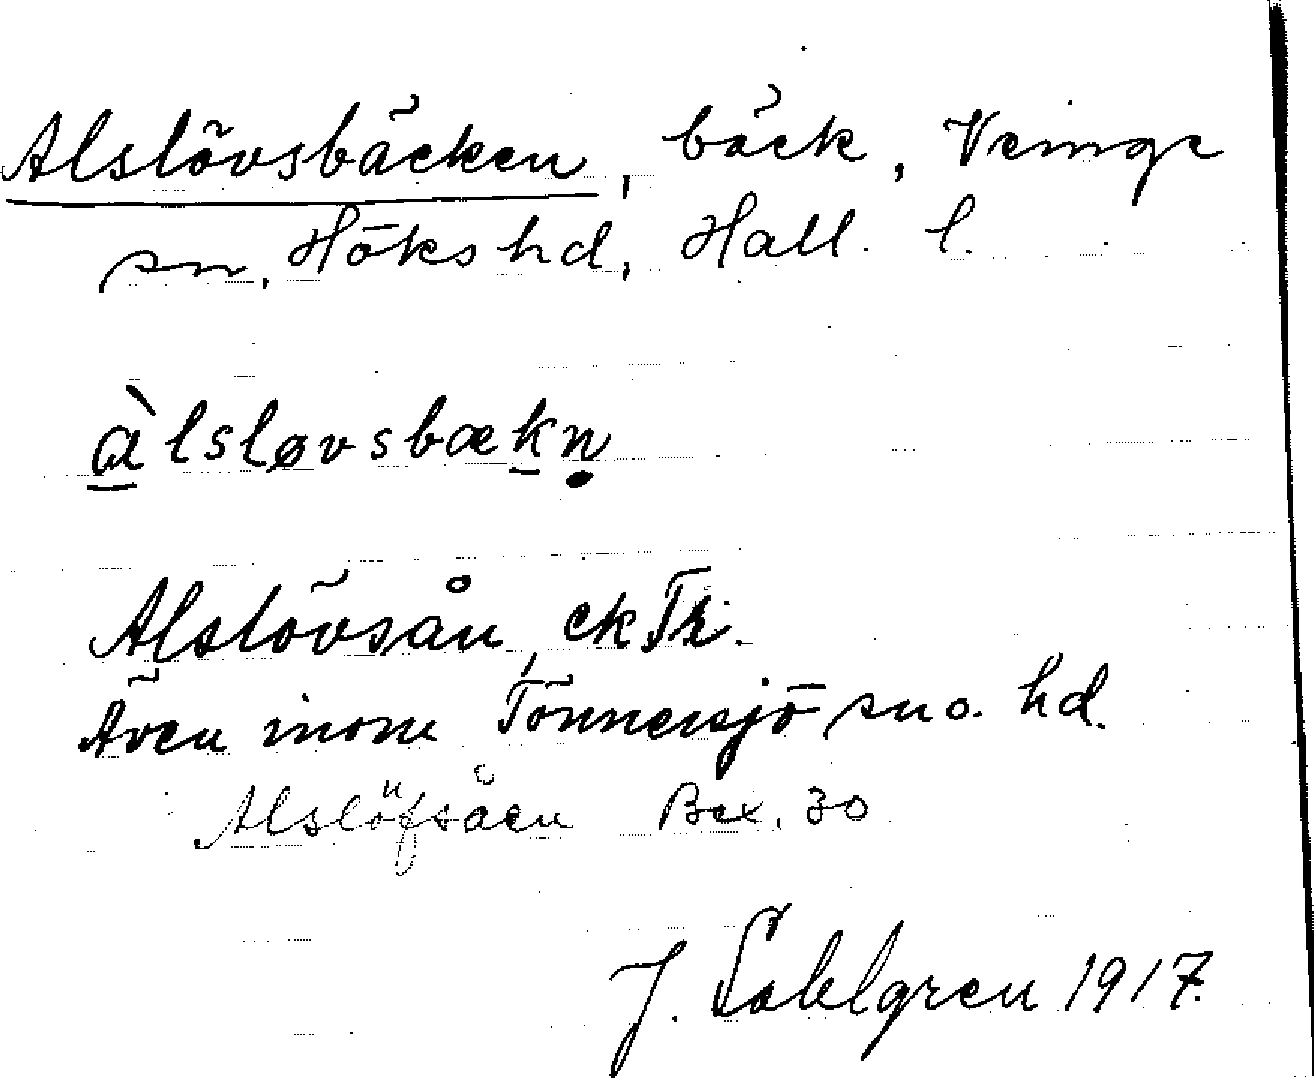 Alslövsbäcken, bäck, Veinge
sn, Höks hd, Hall. l.
àlsløvsbækn̥
Alslövsån, ek Tr.
Även inom Tönnersjö sn o. hd.
Alslöfsåen Bex. 30
J. Sahlgren 1917.